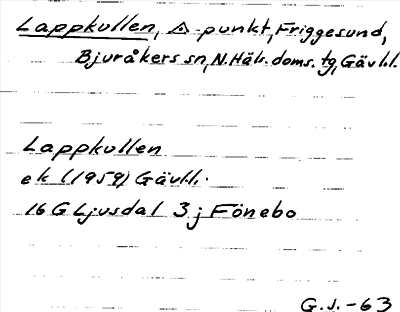 Lappkullen, △-punkt, Friggesund,
Bjuråkers sn, N. Häls. doms. tg, Gävl.l.
Lappkullen
ek l (1959) Gävl.l.
16 G Ljusdal 3 j Fönebo
G. J. -63